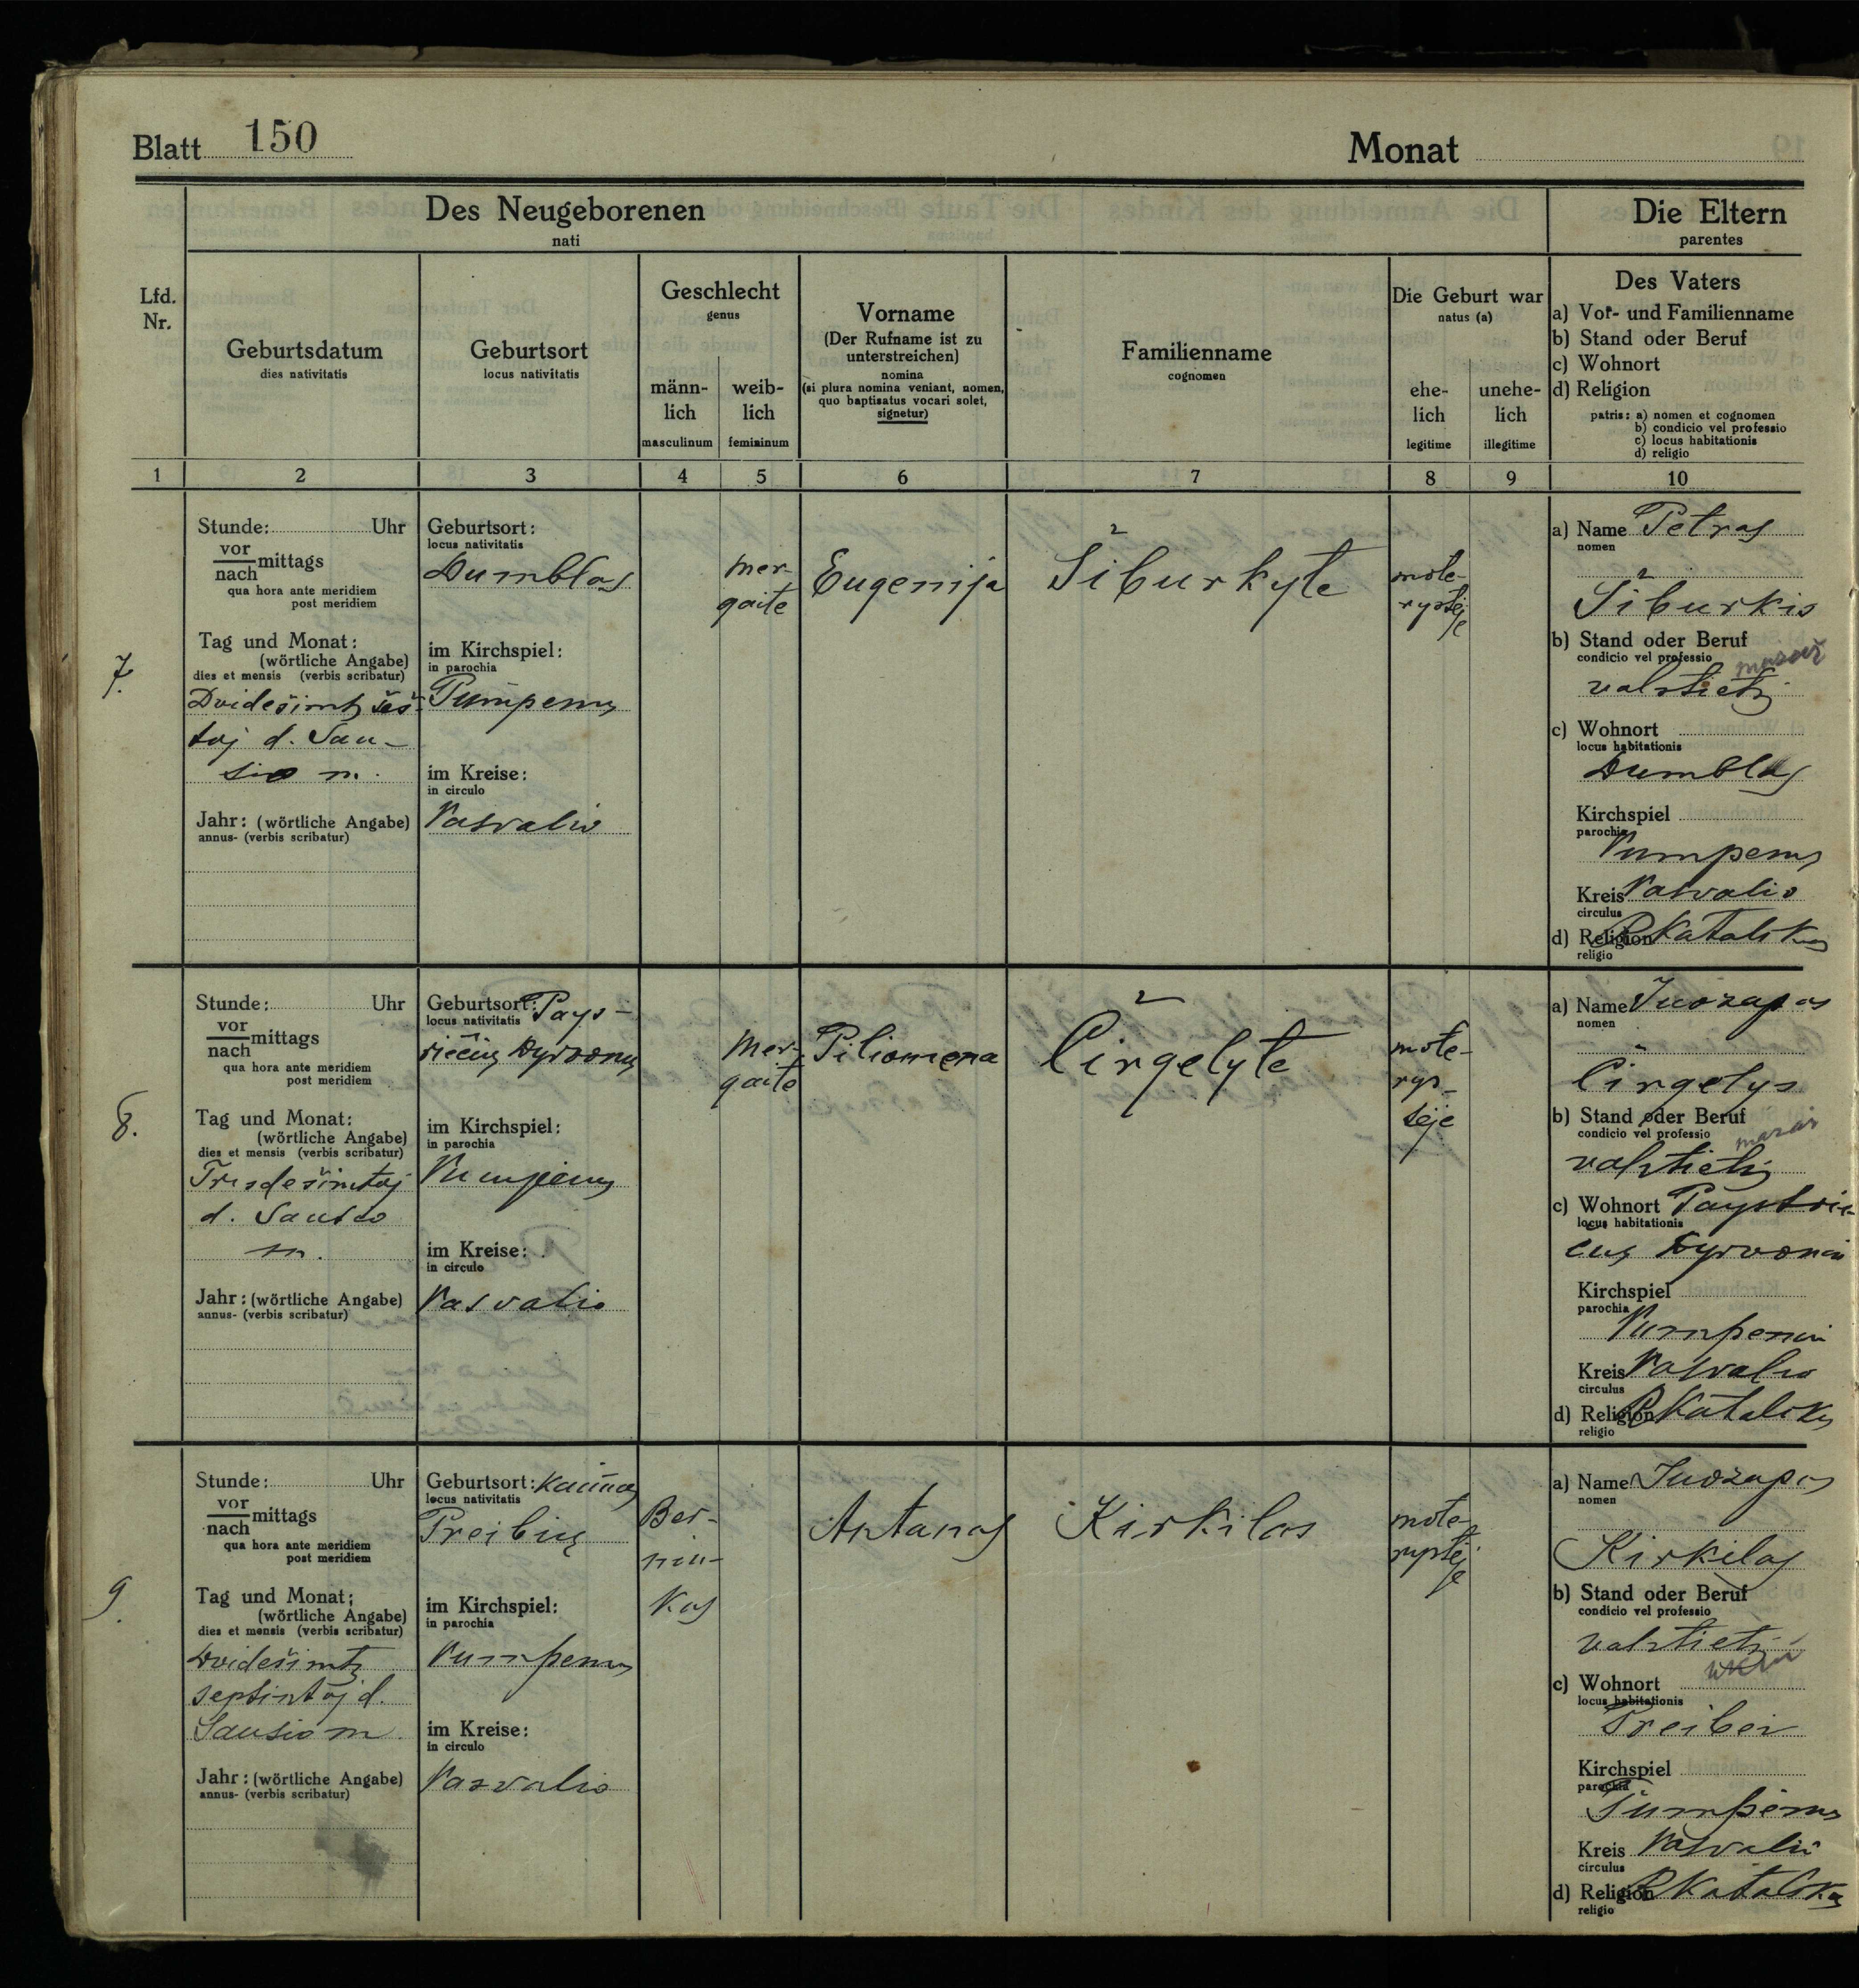 Blatt 150
Monat
Des Neugeborenen
nati
Die Eltern
parentes
Lfd.
Nr.
Geburtsdatum
dies nativitatis
Geburtsort
locus nativitatis
Geschlecht
genus
männ-
lich
masculinum
weib-
lich
femininum
Vorname
(Der Rufname ist zu
unterstreichen)
nomina
(si plura nomina veniant, nomen,
quo baptisatus vocari solet,
signetur)
Familienname
cognomen
Die Geburt war
natus (a)
ehe-
lich
legitime
unehe-
lich
illegitime
Des Vaters
a) Vor- und Familienname
b) Stand oder Beruf
c) Wohnort
d) Religion
patris: a) nomen et cognomen
b) condicio vel professio
c) locus habitationis
d) religio
1 2 3 4 5 6 7 8 9 10
7.
Stunde: Uhr
vor
nach mittags
qua hora ante meridiem
post meridiem
Tag und Monat:
(wörtliche Angabe)
dies et mensis (verbis scribatur)
Dvidešimtų šeš-
toj d. Sau-
sio m.
Jahr: (wörtliche Angabe)
annus- (verbis scribatur)
Geburtsort:
locus nativitatis
Dumblas
im Kirchspiel:
in parochia
Pumpenų
im Kreise:
in circulo
Pasvalio
mer-
gaitė
Eugenija
Šiburkyte
mote-
rystėj
e
a) Name Petras
nomen
Šiburkis
b) Stand oder Beruf
condicio vel professio
mazaž
valstietis
c) Wohnort
locus habitationis
Dumblas
Kirchspiel
parochia
Pumpenų
Kreis Pasvalio
circulus
d) Religion R Katalikas
religio
8.
Stunde: Uhr
vor
nach mittags
qua hora ante meridiem
post meridiem
Tag und Monat:
(wörtliche Angabe)
dies et mensis (verbis scribatur)
Trisdešimtoj
d. Sausio
m.
Jahr: (wörtliche Angabe)
annus- (verbis scribatur)
Geburtsort: Pays-
locus nativitatis
riečių Dyrvonų
im Kirchspiel:
in parochia
Pumpenų
im Kreise:
in circulo
Pasvalio
Mer-
gaitė
Piliomena
Čirgelyte
mote-
rys-
tėje
a) Name Juozapas
nomen
Čirgelys
b) Stand oder Beruf
condicio vel professio
mazaž
valstietis
c) Wohnort
locus habitationis
Kirchspiel
parochia
Pumpenų
Kreis Pasvalio
circulus
d) Religion R Katalikas
religio
9.
Stunde: Uhr
vor
nach mittags
qua hora ante meridiem
post meridiem
Tag und Monat:
(wörtliche Angabe)
dies et mensis (verbis scribatur)
Dvidešimtų
septintoj d.
Sausio m.
Jahr: (wörtliche Angabe)
annus- (verbis scribatur)
Geburtsort: Kaimas
locus nativitatis
Preibių
im Kirchspiel:
in parochia
Pumpenų
im Kreise:
in circulo
Pasvalio
Ber-
niu-
kas
Antanas
Kirkilas
mote-
rystėj
e
a) Name Juozapas
nomen
Kirkilas
b) Stand oder Beruf
condicio vel professio
valstietis
c) Wohnort
locus habitationis
Preibių
Kirchspiel
parochia
Pumpenų
Kreis Pasvalio
circulus
d) Religion R Katalikas
religio